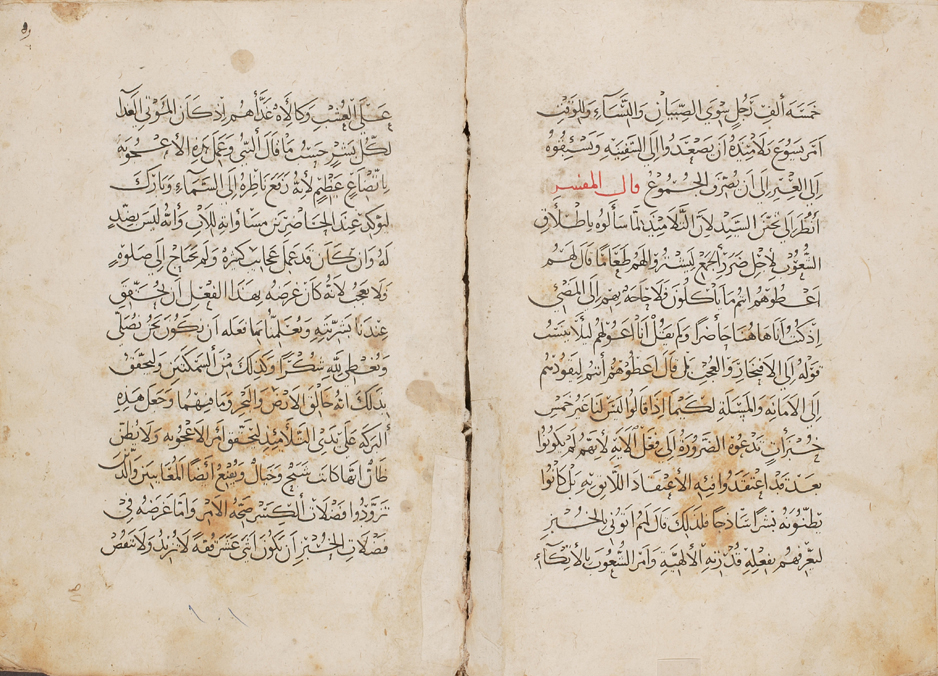 خمسه ألف رجل سوى الصبيان والنساء وللوقت
امر يسوع تلاميذه ان يصعدوا الى السفينه ويسبقوه
الى العبر الى ان يصرف الجموع قال المفسر
انظر الى تحنن السيد لان التلاميذ لما سألوه باطلاق
الشعوب لاجل ضرر الجمع ليشتروا لهم طعاما قال لهم
اعطوهم انتم ما ياكلون ولا حاجه بهم الى المضي
اذ كنت انا هاهنا حاضرا ولم يقل انا اعولهم ليلا ينسب
قوله الى الافتخار والعجب بل قال اعطوهم أنتم ليقودهم
الى الامانه والمسله لكيما اذا قالوا ليس لنا غير خمس
خبزات تدعوه الضروره الى فعل الايه لأنهم لم يكونوا
بعد قد اعتقدوا فيه الأعتقاد اللايق به بل كانوا
يظنونه بشرا ساذجا فلذلك قال لهم اتوني بالخبز
ليعرفهم بفعله قدرته الألهية وامر الشعوب بالاتكاء
على العشب وكالاه غداهم اذ كان المؤتي الغدا
لكل بشر حسب ما قال النبي وعمل هذه الاعجوبه
باتضاع عظيم لانه رفع ناظره الى السماء وبارك
ليوكد عند الحاضرين مساواته للاب وأنه ليس بضد
له وان كان قد عمل عجايب كثيره ولم يحتاج الى صلوه
ولا يعجب لانه كان غرضه بهذا الفعل ان يحقق
عندنا بشريته ويعلمنا بما فعله ان يكون نحن نصلي
ونعطي لله شكرا وكذلك من السمكتين وليحقق
بذلك انه خالق الارض والبحر وما فيهما وجعل هذه
البركه على يدي التلاميذ لتحقق امر الاعجوبه ولا يظن
ظان انها كانت شبح وخيال ويقنع أيضا المغايبين والذ
تزودوا فضلات الكسر صحه الامر واما غرضه في
فضلات الخبز ان يكون اثني عشر قفه لا تزيد ولا تنقص